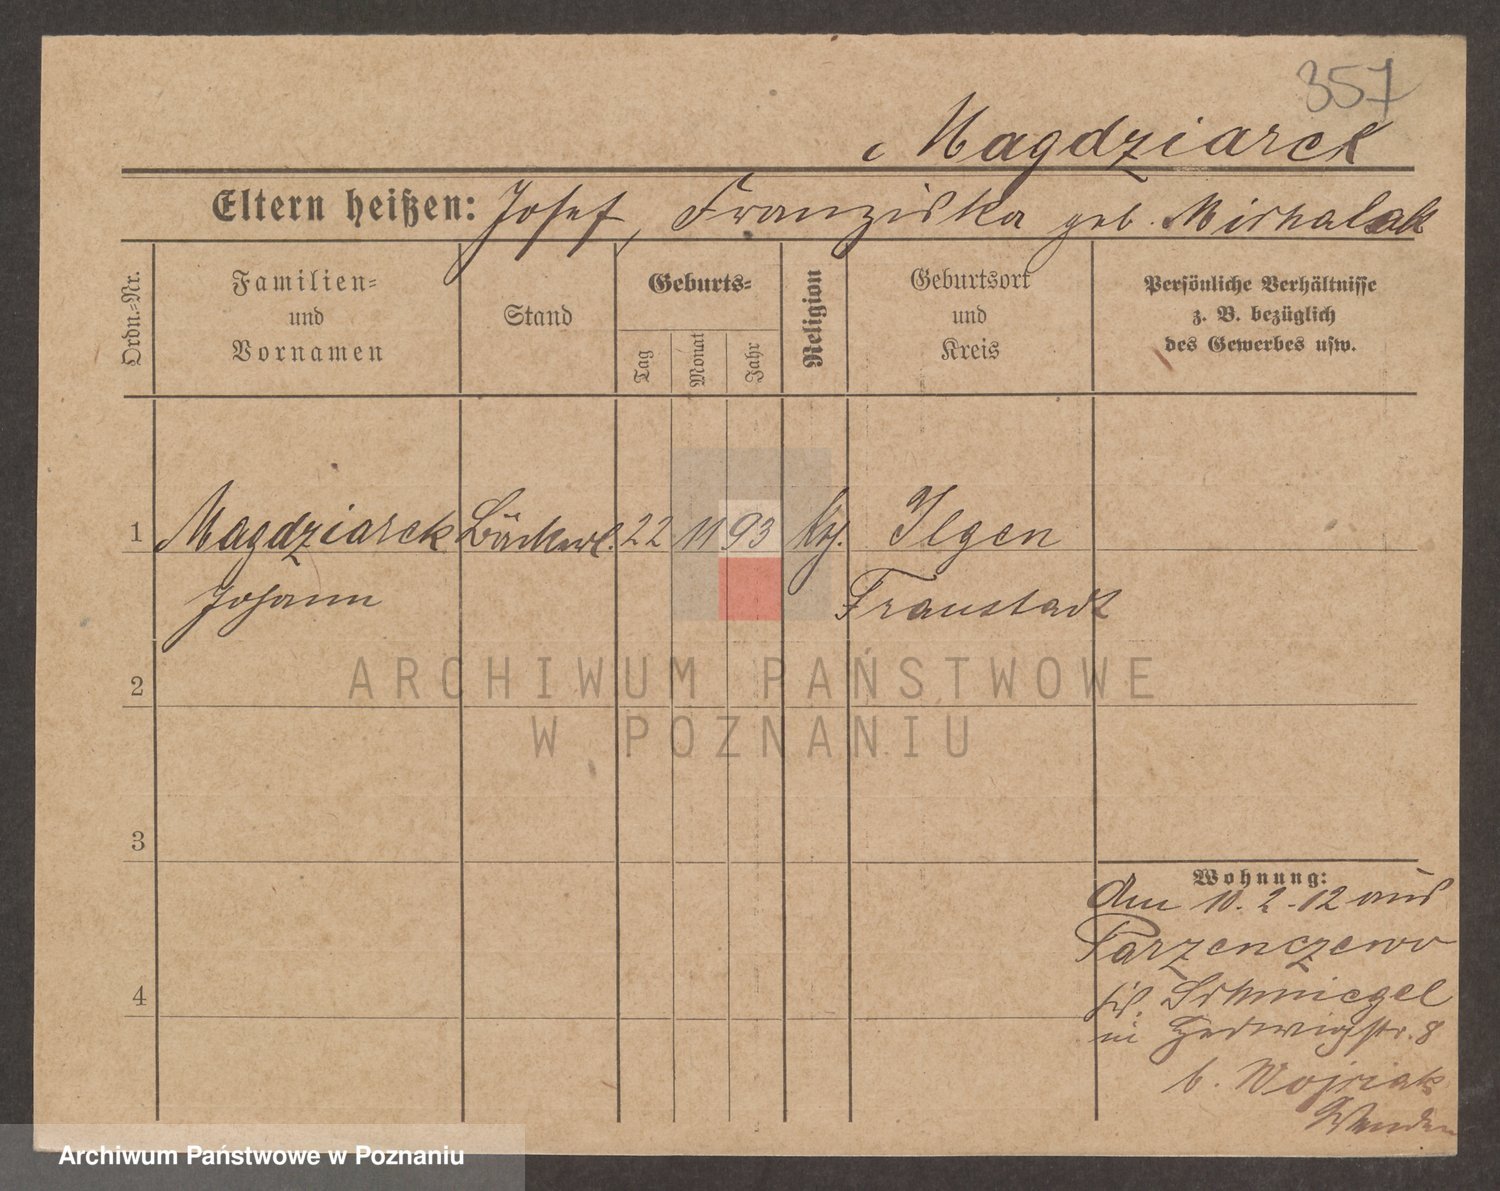 357
Magdziarek
Eltern heißen: Josef, Franziska geb. Michalak
Ordn.=Nr.
Familien=
und
Vornamen
Stand
Geburts=
Tag
Monat
Jahr
Religion
Geburtsort
und
Kreis
Persönliche Verhältnisse
z. B. bezüglich
des Gewerbes usw.
1 Magdziarek Bäckerl. 22 11 93 kth. Ilgen
Johann Fraustadt
2
3
4
Wohnung:
Am 10.2.12 aus
Parzenczewo
Schmiegel
in Hedwigstr. 8
b. Wojciak
ARCHIWUM PAŃSTWOWE
W POZNANIU
Archiwum Państwowe w Poznaniu